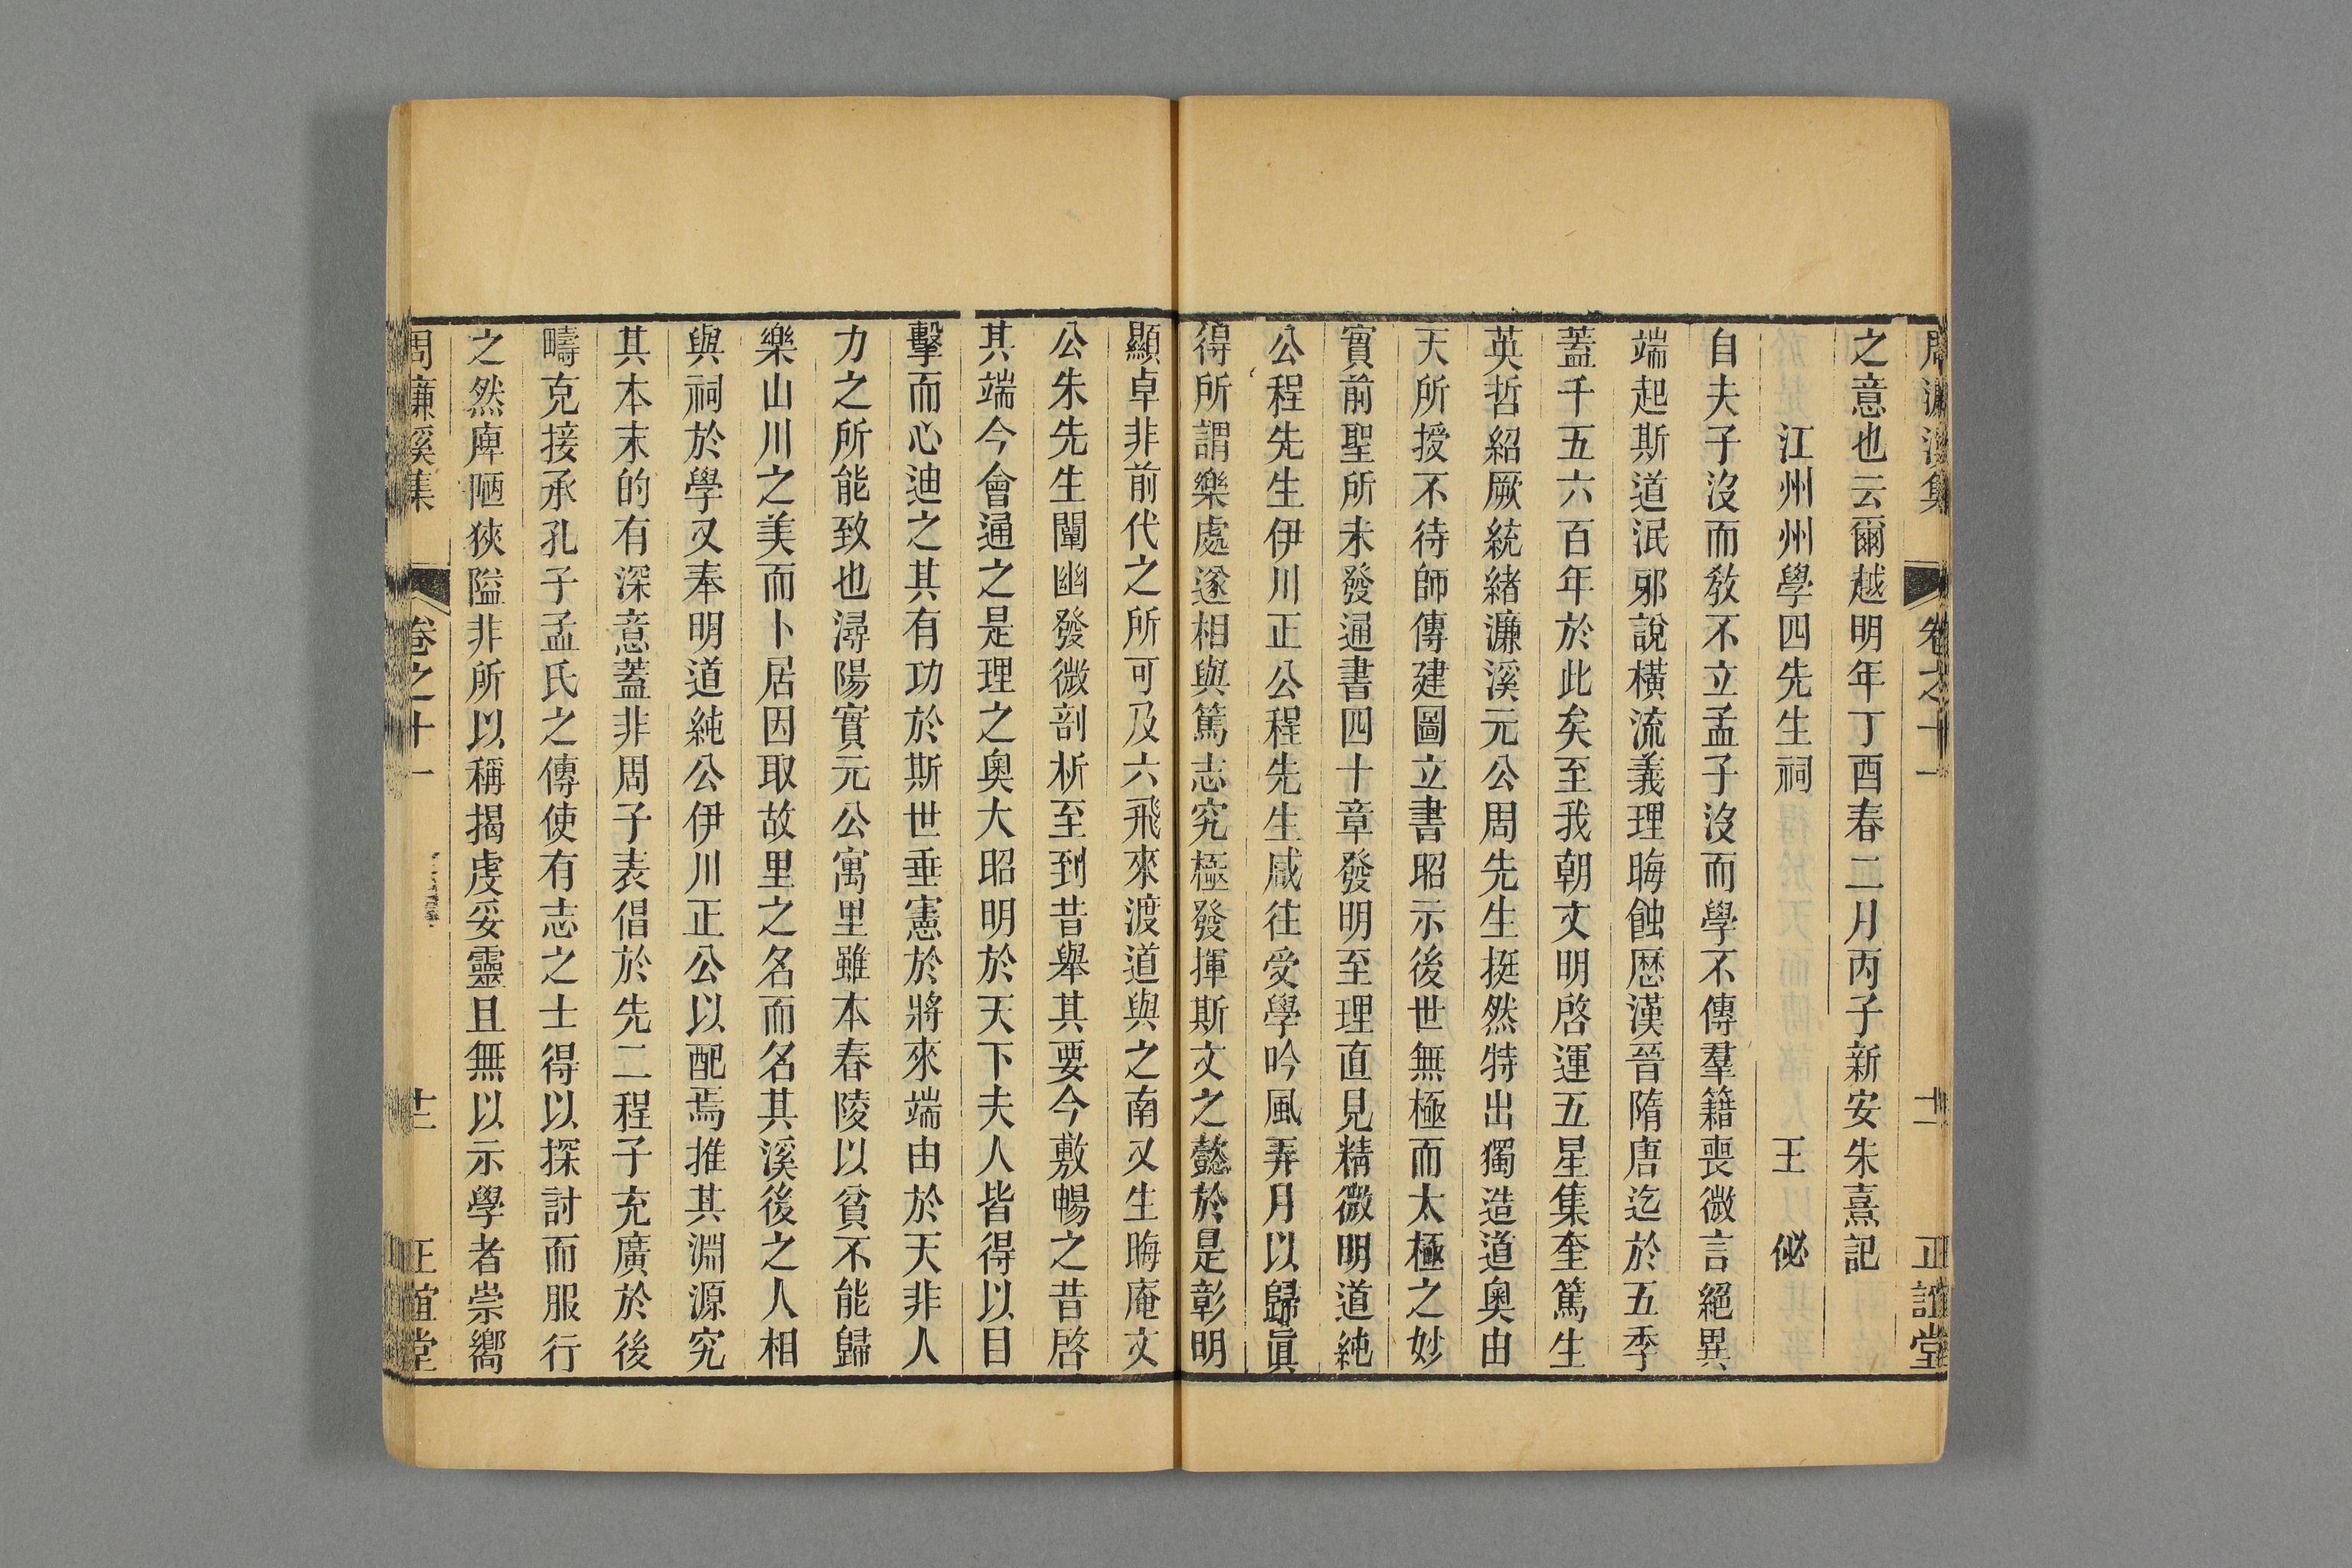 周濂溪集 卷之十一 十二 正誼堂
之意也云爾越明年丁酉春二月丙子新安朱熹記
江州州學四先生祠 王 佖
自夫子沒而敎不立孟子沒而學不傳羣籍喪微言絕異
端起斯道泯邪說橫流義理晦蝕歷漢晉隋唐迄於五季
蓋千五六百年於此矣至我朝文明啓運五星集奎篤生
英哲紹厥統緒濂溪元公周先生挺然特出獨造道奧由
天所授不待師傳建圖立書昭示後世無極而太極之妙
實前聖所未發通書四十章發明至理直見精微明道純
公程先生伊川正公程先生咸往受學吟風弄月以歸眞
得所謂樂處遂相與篤志究極發揮斯文之懿於是彰明
顯卓非前代之所可及六飛來渡道與之南又生晦庵文
公朱先生闡幽發微剖析至到昔舉其要今敷暢之昔啓
其端今會通之是理之奧大昭明於天下夫人皆得以目
擊而心迪之其有功於斯世垂憲於將來端由於天非人
力之所能致也潯陽實元公寓里雖本舂陵以貧不能歸
樂山川之美而卜居因取故里之名而名其溪後之人相
與祠於學又奉明道純公伊川正公以配焉推其淵源究
其本末的有深意蓋非周子表倡於先二程子充廣於後
疇克接承孔子孟氏之傳使有志之士得以探討而服行
之然庳陋狹隘非所以稱揭虔妥靈且無以示學者崇嚮
周濂溪集 卷之十一 十二 正誼堂